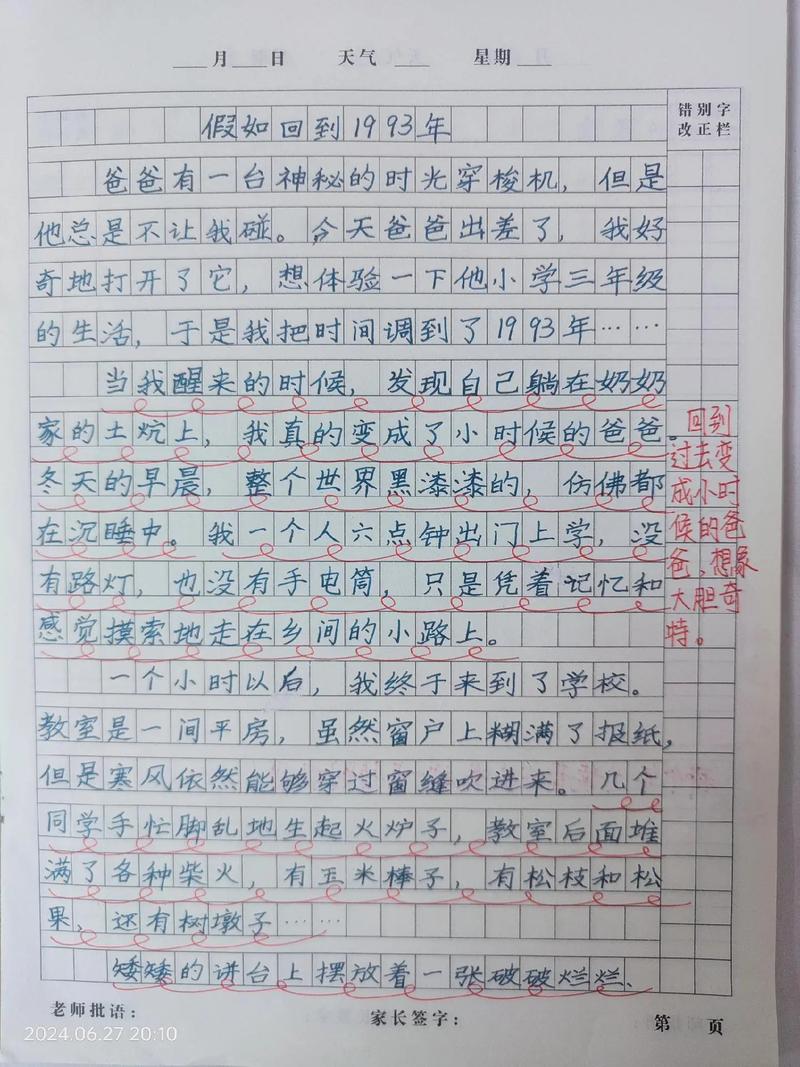 月 日 天气 星期
错别字
改正栏
假如回到1993年
爸爸有一台神秘的时光穿梭机，但是
他总是不让我碰。今天爸爸出差了，我好
奇地打开了它，想体验一下他小学三年级
的生活，于是我把时间调到了1993年……
当我醒来的时候，发现自己躺在奶奶
家的土炕上，我真的变成了小时候的爸爸。
冬天的早晨，整个世界黑漆漆的，仿佛都
在沉睡中。我一个人六点钟出门上学，没
有路灯，也没有手电筒，只是凭着记忆和
感觉摸索地走在乡间的小路上。
一个小时以后，我终于来到了学校。
教室是一间平房，虽然窗户上糊满了报纸，
但是寒风依然能够穿过窗缝吹进来。几个
同学手忙脚乱地生起火炉子，教室后面堆
满了各种柴火，有玉米棒子，有松枝和松
果，还有树墩子……
矮矮的讲台上摆放着一张破破烂烂、
回到
过去变
成小时
候的爸
爸，想象
大胆奇
特。
老师批语： 家长签字： 第 页
2024.06.27 20:10